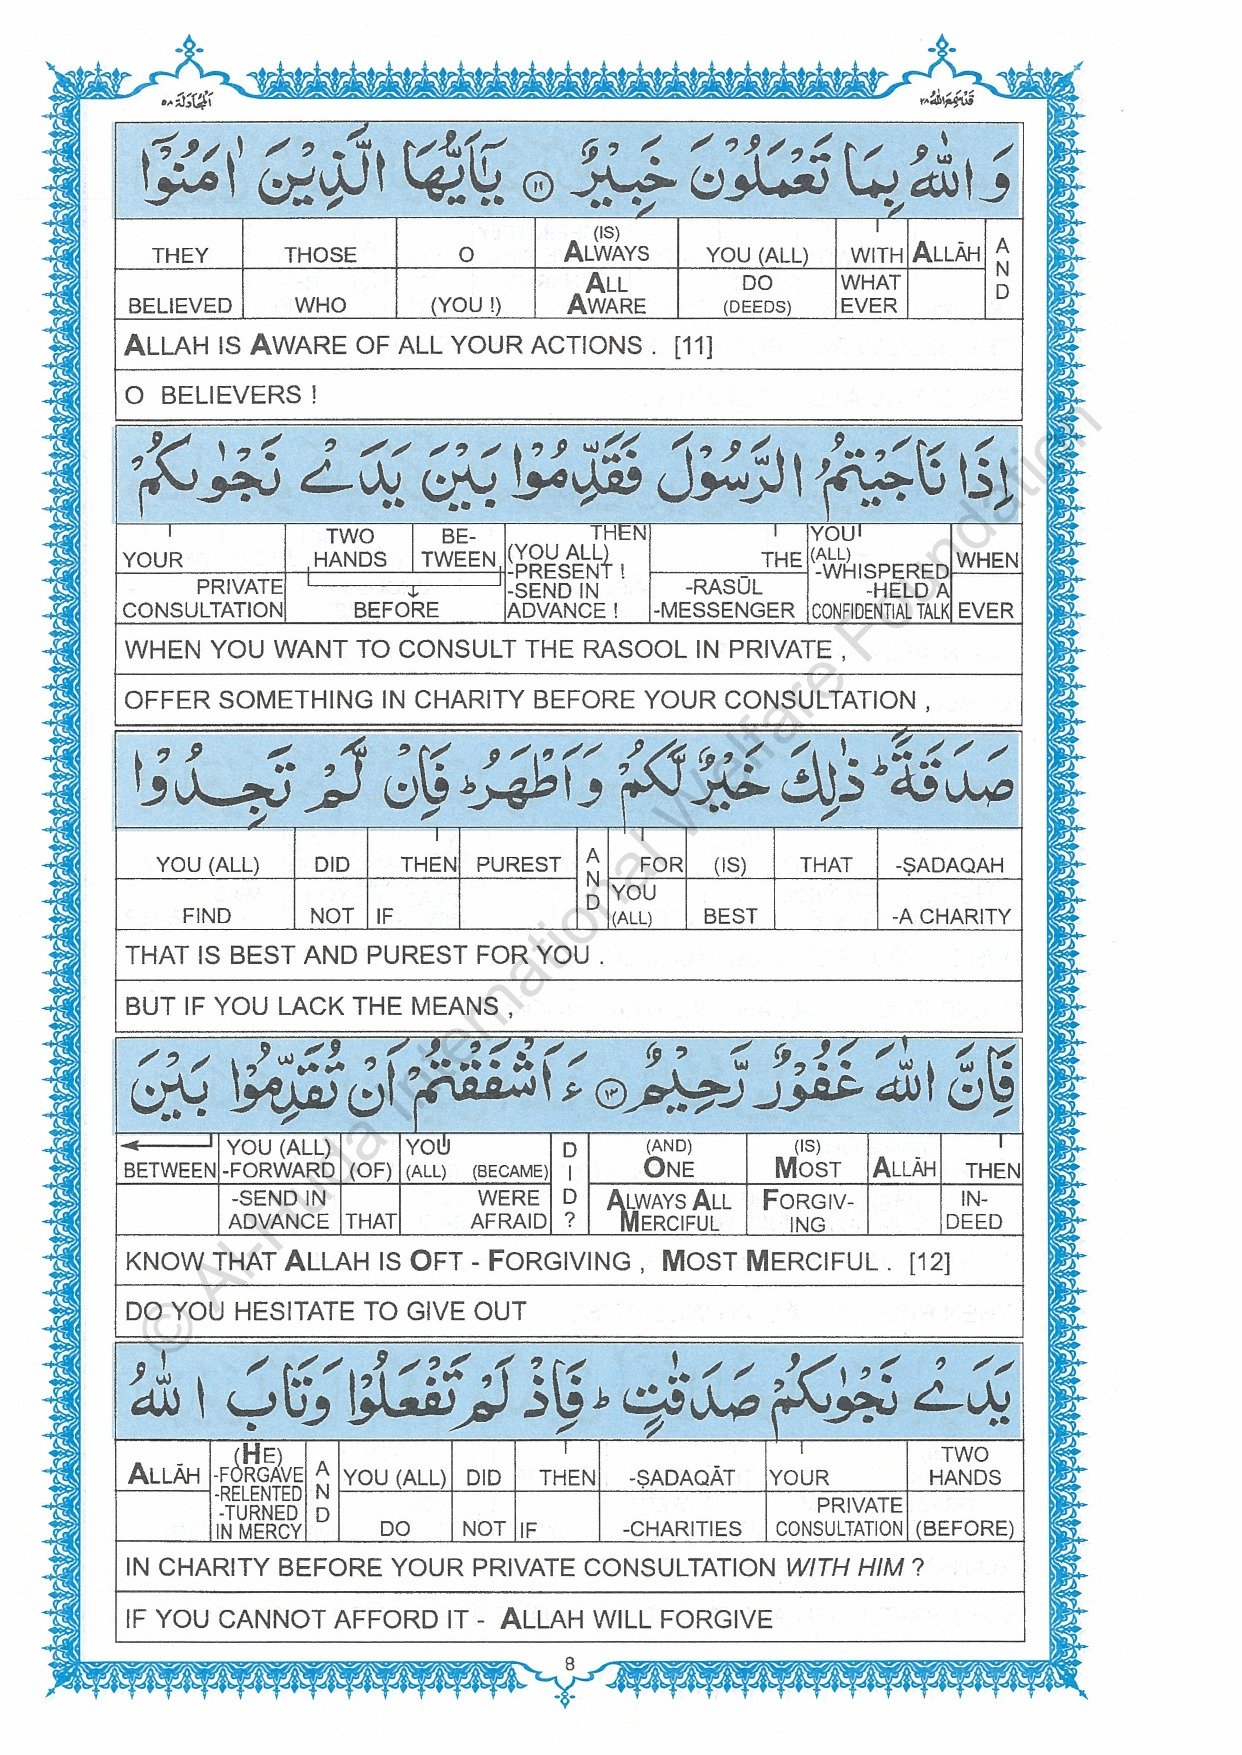 المجادلة ٥٨
قد سمع الله ٢٨
وَاللّٰهُ بِمَا تَعْمَلُوْنَ خَبِيْرٌ ۝١١ يٰۤاَيُّهَا الَّذِيْنَ اٰمَنُوْۤا
THEY THOSE O (IS) ALWAYS YOU (ALL) WITH ALLĀH AND
BELIEVED WHO (YOU !) ALL AWARE DO (DEEDS) WHAT EVER
ALLAH IS AWARE OF ALL YOUR ACTIONS . [11]
O BELIEVERS !
اِذَا نَاجَيْتُمُ الرَّسُوْلَ فَقَدِّمُوْا بَيْنَ يَدَيْ نَجْوٰىكُمْ
YOUR TWO HANDS BE-TWEEN THEN (YOU ALL) THE YOU (ALL) WHEN
PRIVATE CONSULTATION BEFORE -PRESENT ! -SEND IN ADVANCE ! -RASŪL -MESSENGER -WHISPERED -HELD A CONFIDENTIAL TALK EVER
WHEN YOU WANT TO CONSULT THE RASOOL IN PRIVATE ,
OFFER SOMETHING IN CHARITY BEFORE YOUR CONSULTATION ,
صَدَقَةً ؕ ذٰلِكَ خَيْرٌ لَّكُمْ وَاَطْهَرُ ؕ فَاِنْ لَّمْ تَجِدُوْا
YOU (ALL) DID THEN PUREST AND FOR (IS) THAT -ṢADAQAH
FIND NOT IF YOU (ALL) BEST -A CHARITY
THAT IS BEST AND PUREST FOR YOU .
BUT IF YOU LACK THE MEANS ,
فَاِنَّ اللّٰهَ غَفُوْرٌ رَّحِيْمٌ ۝١٢ ءَاَشْفَقْتُمْ اَنْ تُقَدِّمُوْا بَيْنَ
BETWEEN YOU (ALL) -FORWARD (OF) YOU (ALL) (BECAME) DID ? (AND) ONE (IS) MOST ALLĀH THEN
-SEND IN ADVANCE THAT WERE AFRAID ALWAYS ALL MERCIFUL FORGIV-ING IN-DEED
KNOW THAT ALLAH IS OFT - FORGIVING , MOST MERCIFUL . [12]
DO YOU HESITATE TO GIVE OUT
يَدَيْ نَجْوٰىكُمْ صَدَقٰتٍ ؕ فَاِذْ لَمْ تَفْعَلُوْا وَتَابَ اللّٰهُ
ALLĀH (HE) -FORGAVE -RELENTED -TURNED IN MERCY AND YOU (ALL) DID THEN -ṢADAQĀT YOUR TWO HANDS
DO NOT IF -CHARITIES PRIVATE CONSULTATION (BEFORE)
IN CHARITY BEFORE YOUR PRIVATE CONSULTATION WITH HIM ?
IF YOU CANNOT AFFORD IT - ALLAH WILL FORGIVE
8
© Al-Huda International Welfare Foundation